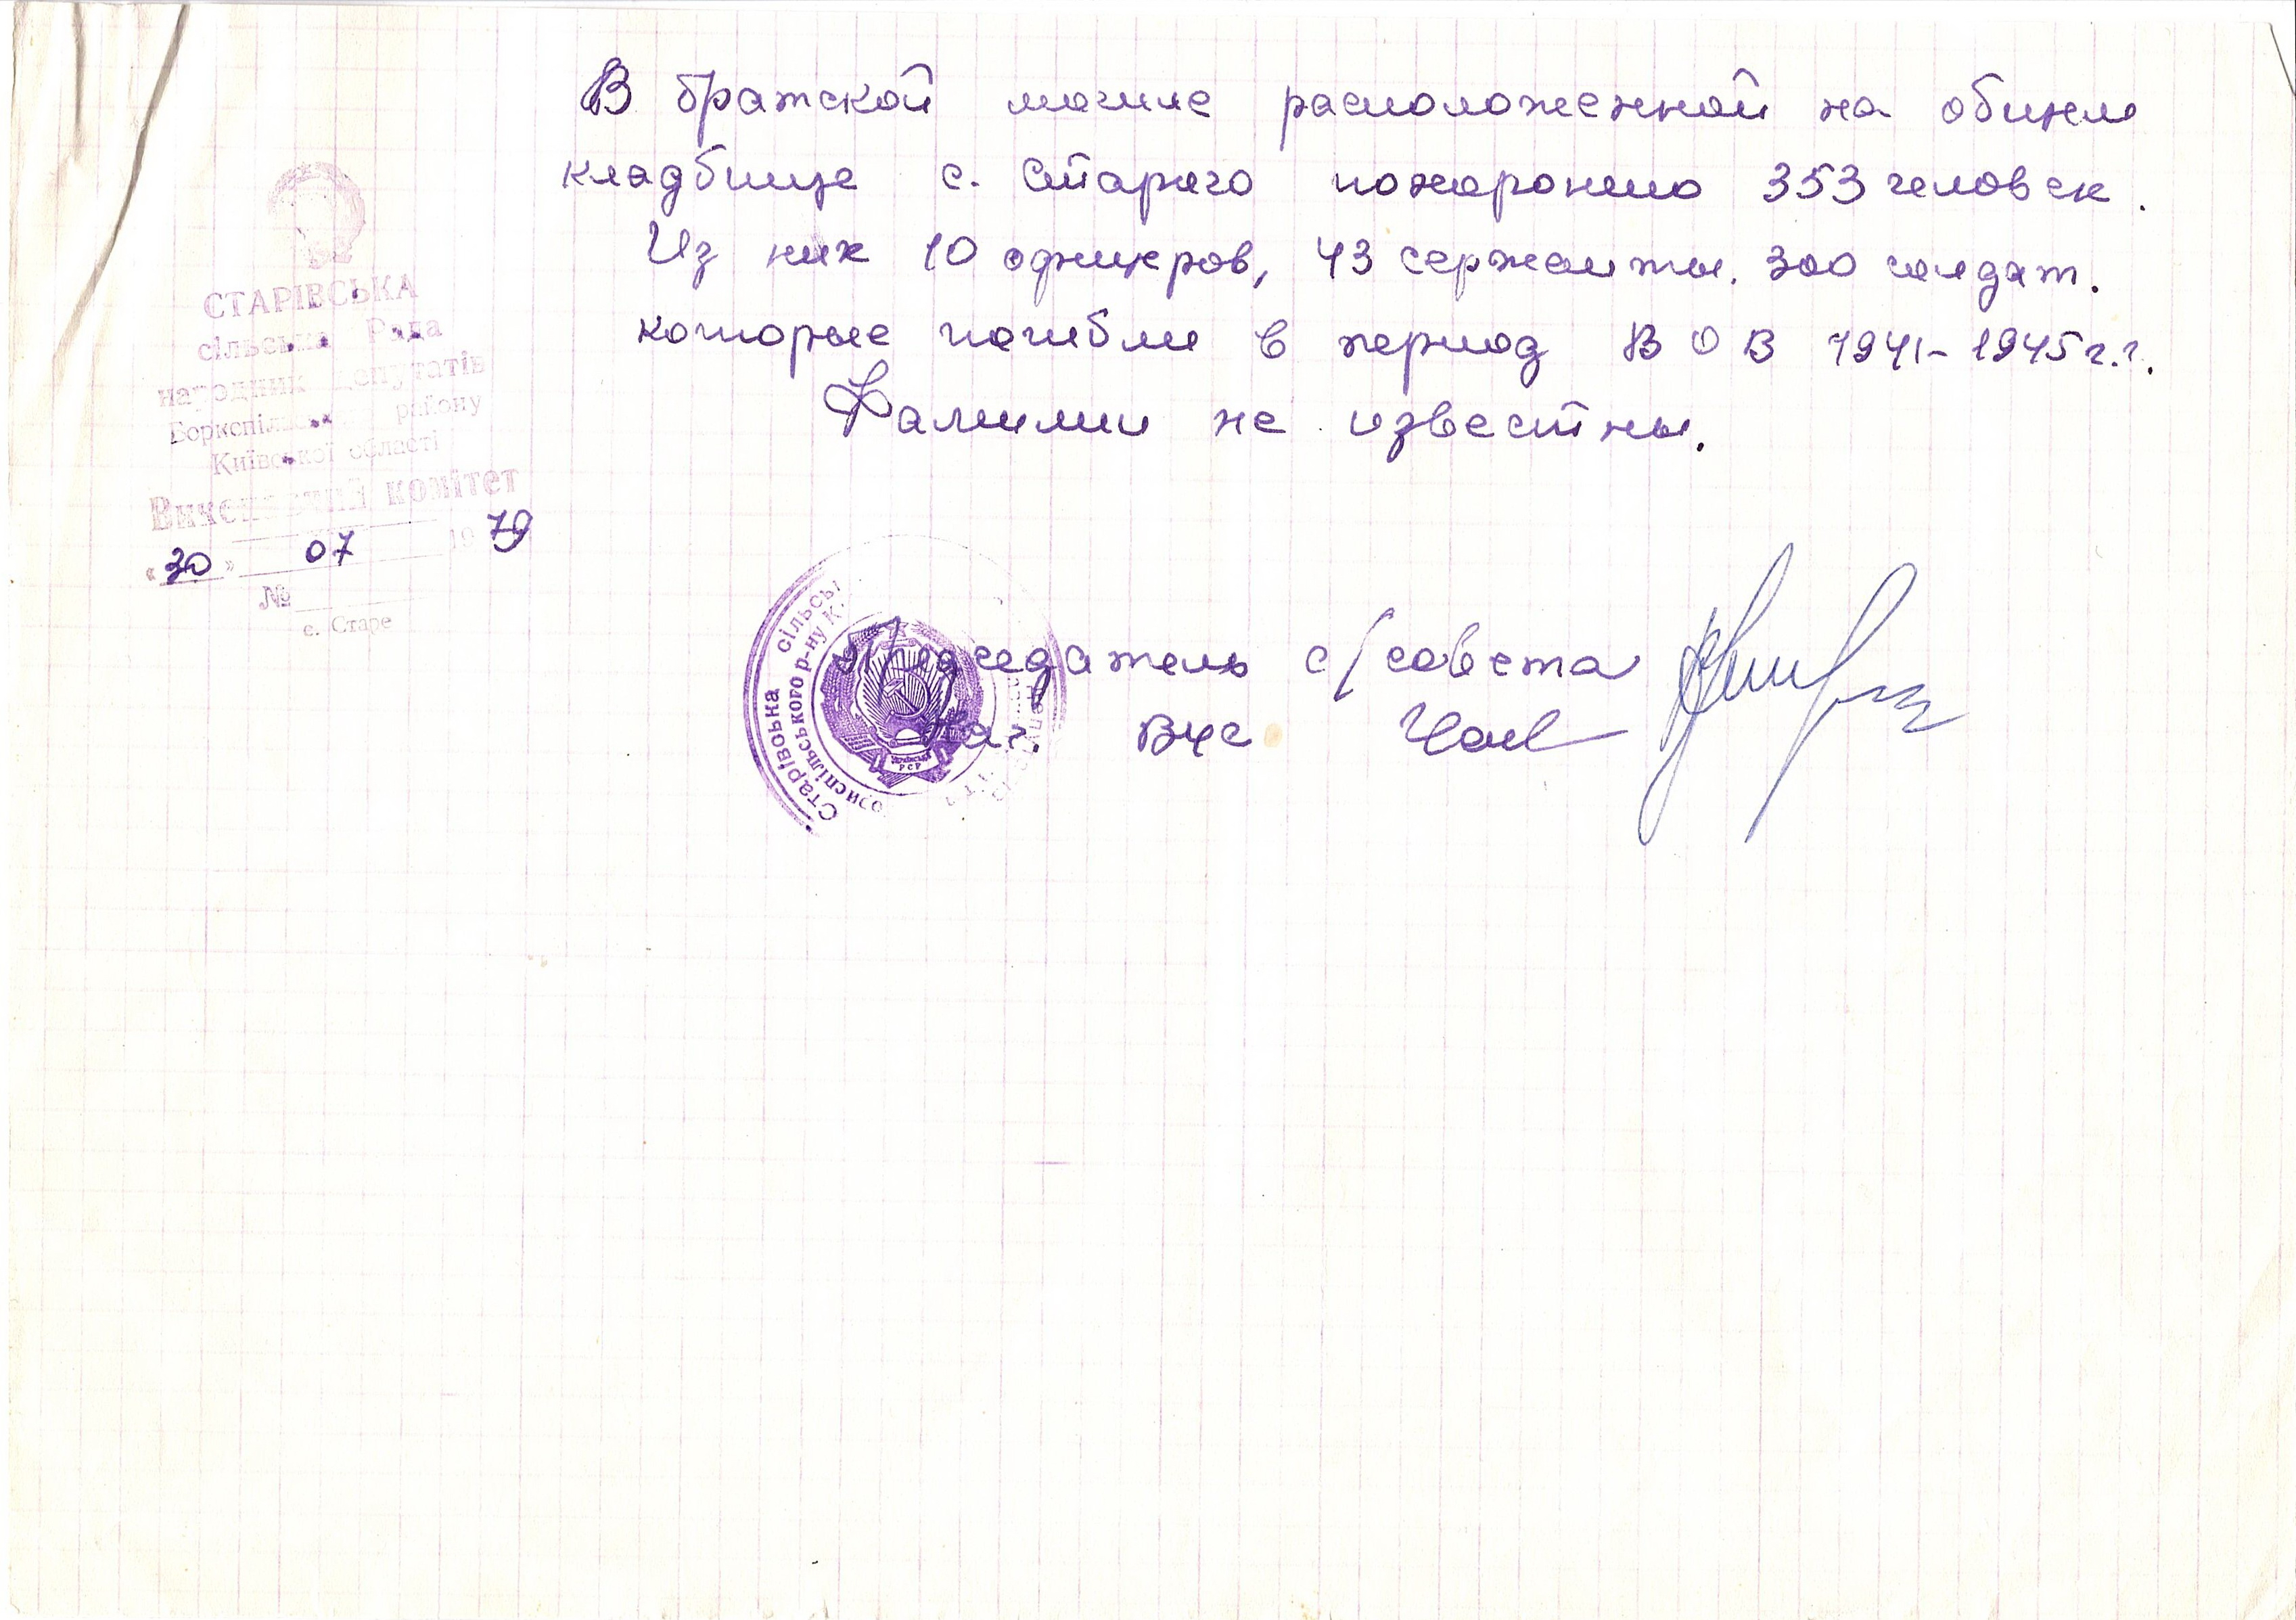 В братской могиле расположенной на общем
кладбище с. Старого похоронено 353 человек.
Из них 10 офицеров, 43 сержанты. 300 солдат.
которые погибли в период ВОВ 1941-1945 г.г.
Фамилии не известны.
СТАРІВСЬКА
сільська Рада
народних депутатів
Бориспільського району
Київської області
Виконавчий комітет
"30" 07 1979
№
с. Старе
Председатель с/совета
Наг. ВУС
Старівська сільсь
ориспільського р-ну К.
УКРАЇНСЬКА
РСР